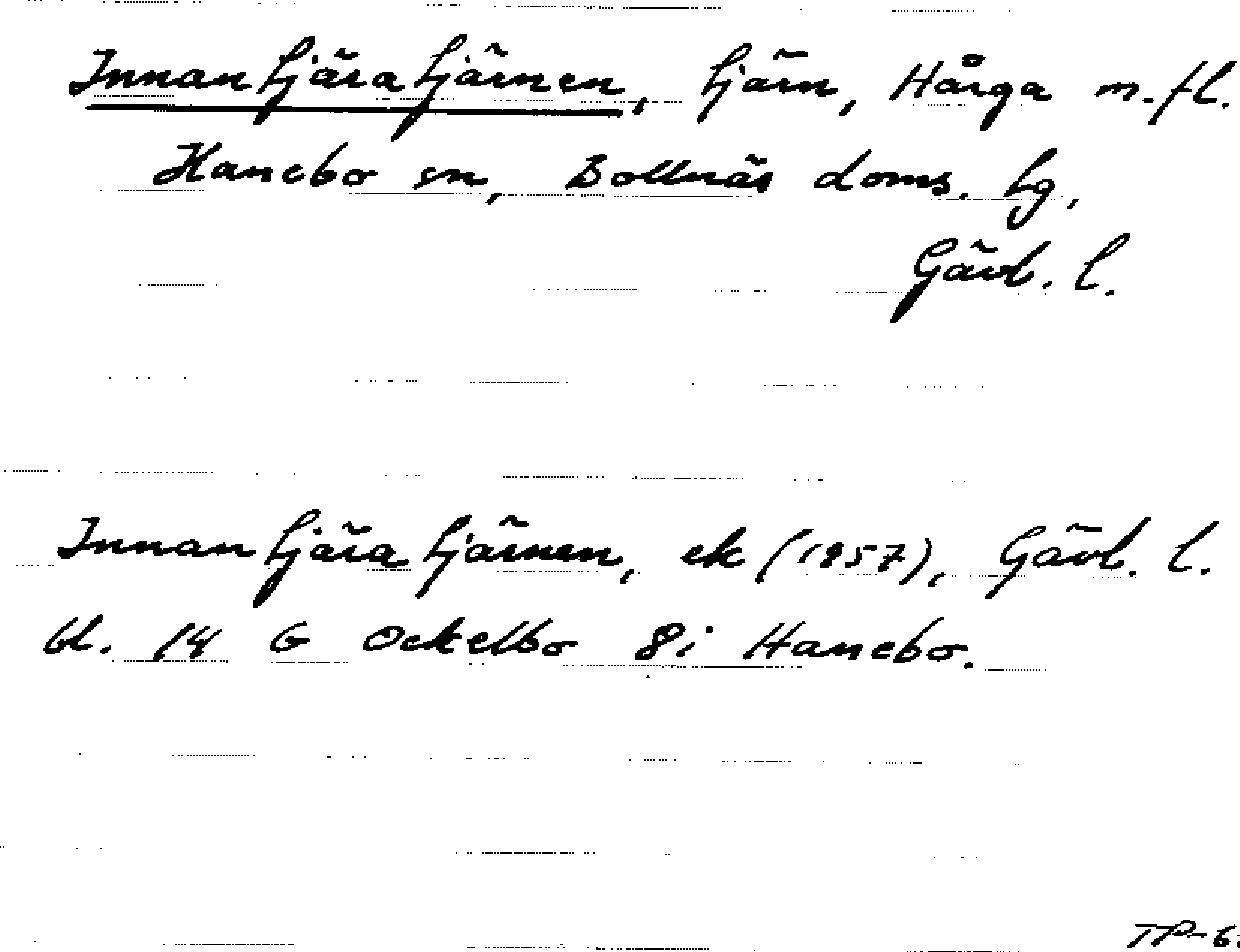 Innantjäratjärnen, tjärn, Hårga m.fl.
Hanebo sn, Bollnäs doms. tg,
Gävl. l.
Innantjäratjärnen, ek (1957), Gävl. l.
bl. 14 G Ockelbo 8i Hanebo.
TP-6